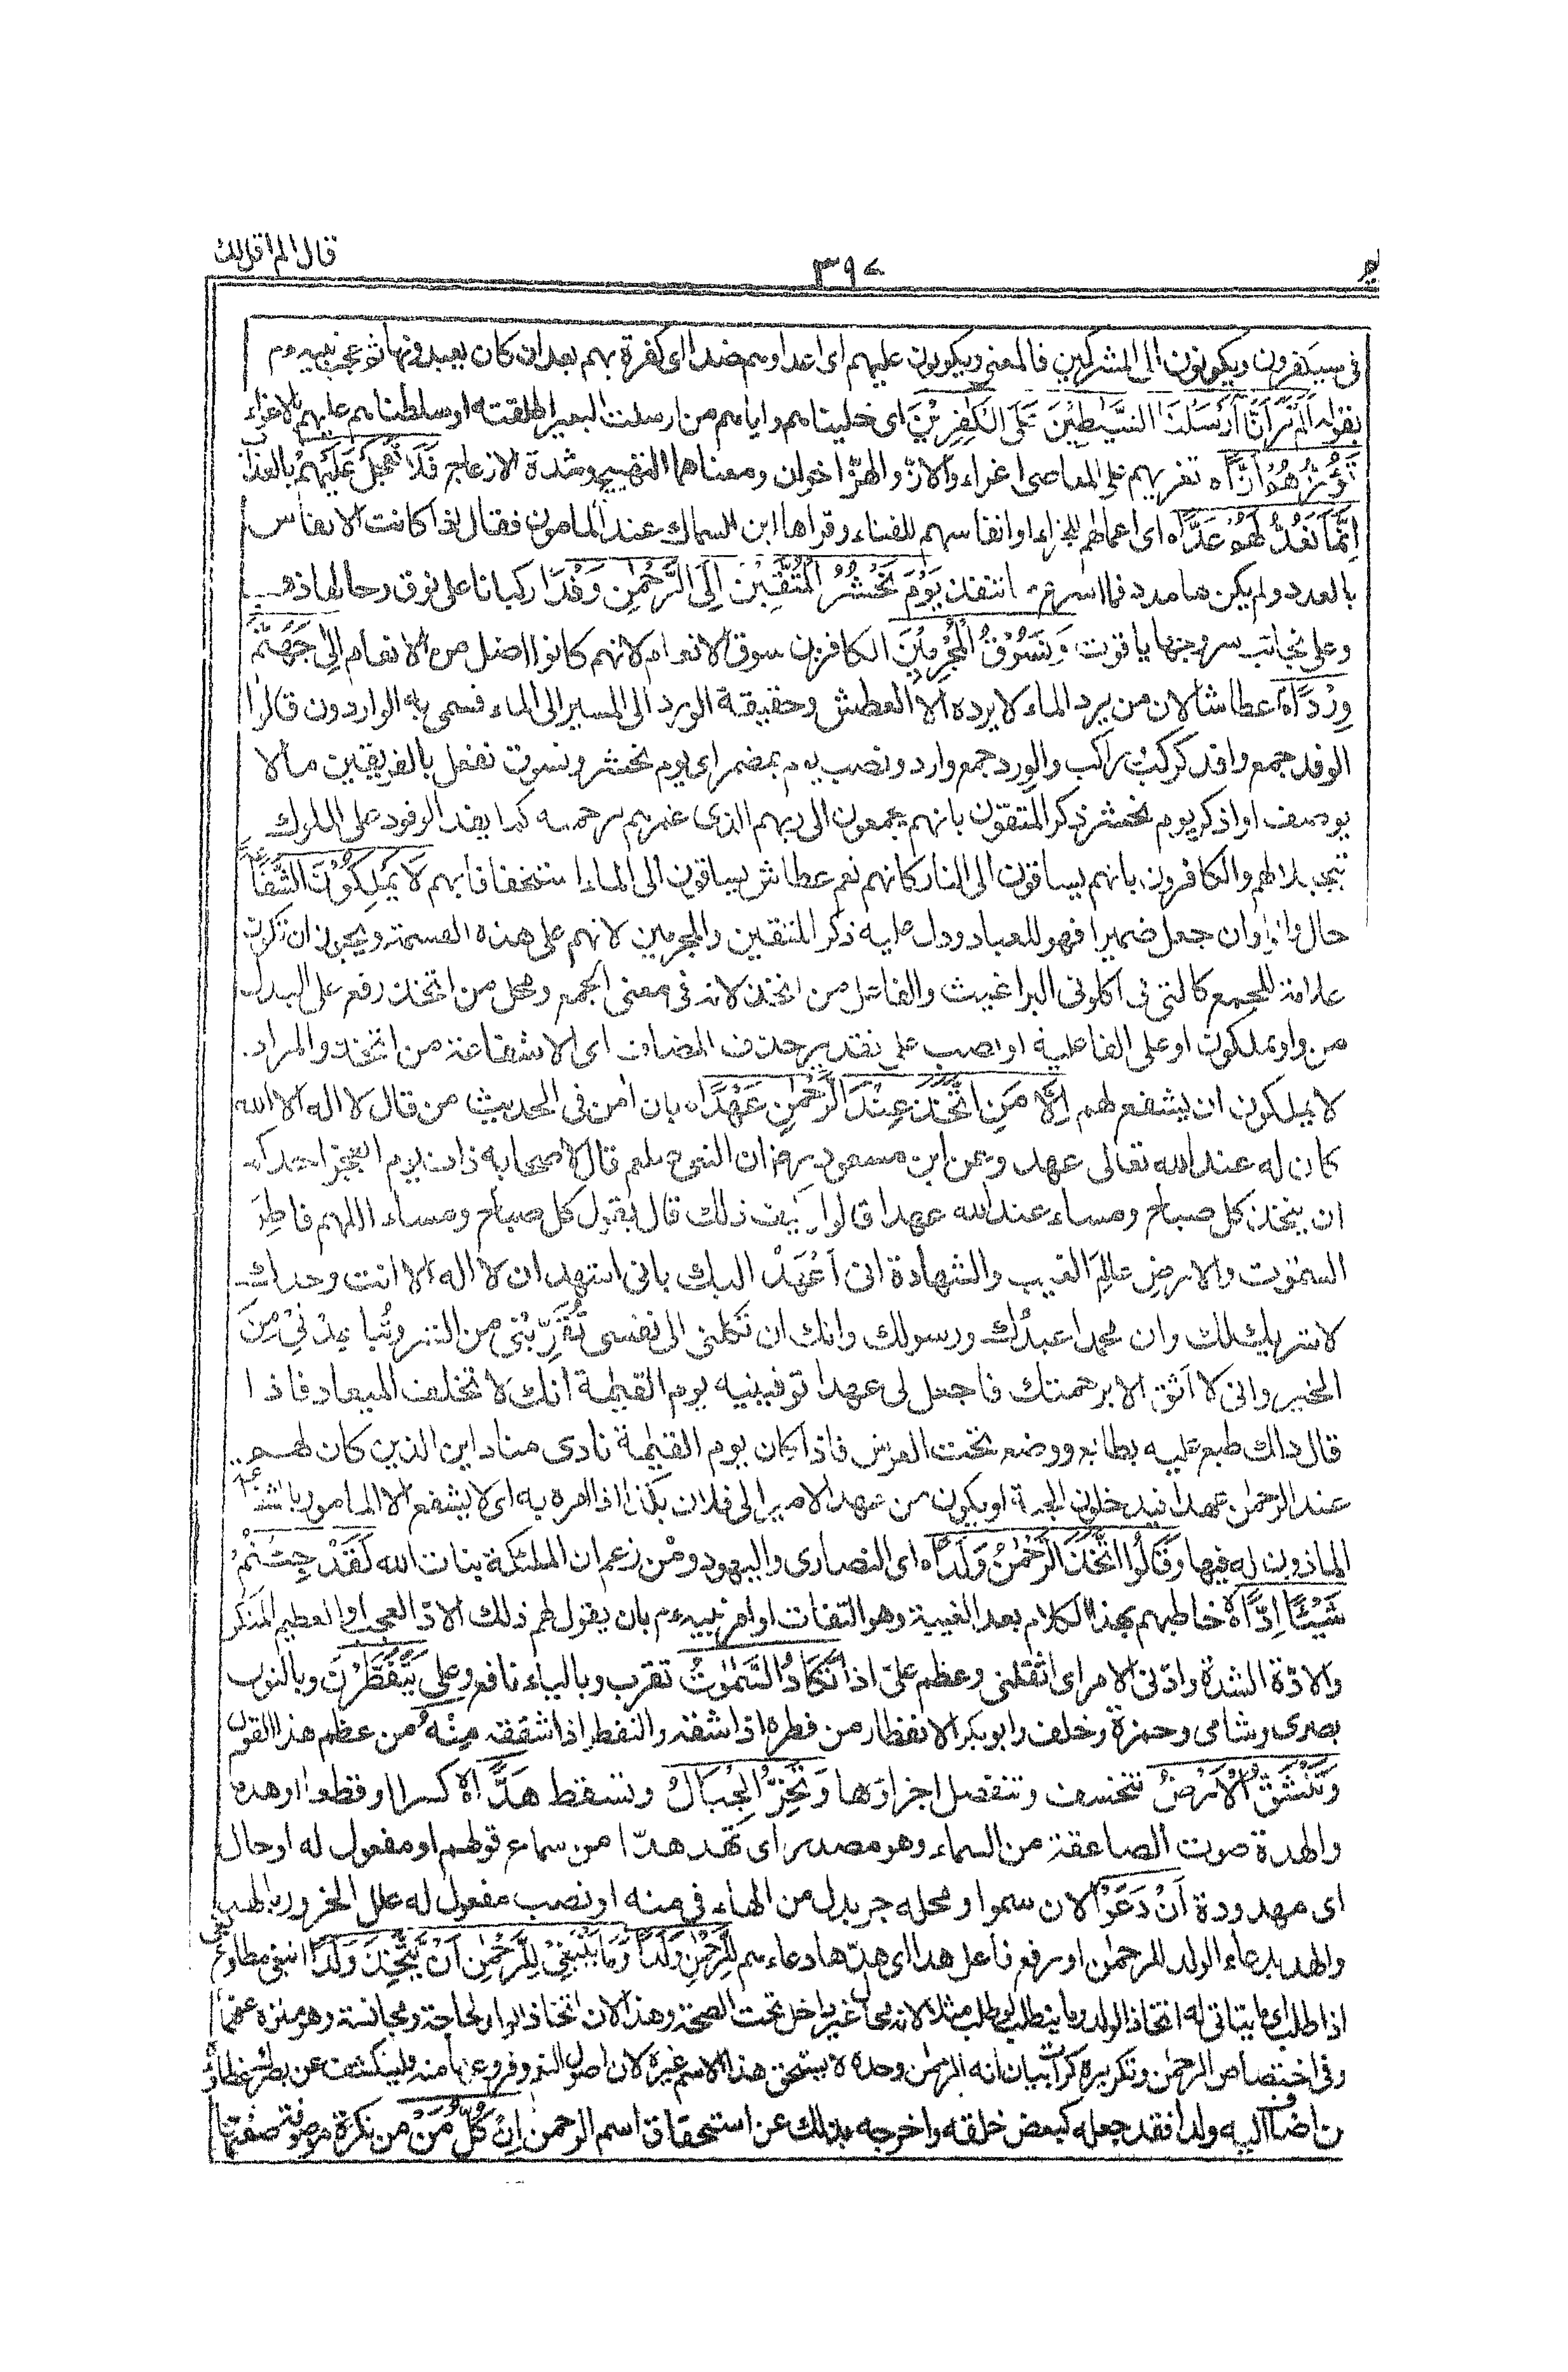 قال الم اقل لك
٣٩٧
فى سيكفرون ويكونون الى المشركين فالمعنى ويكونون عليهم اى اعداوهم ضدا اى كفرة بهم بعد ان كان يعبدونها ثم عجب نبيه ءم
بقوله اَلَمْ تَرَ اَنَّا اَرْسَلْنَا الشَّيٰطِيْنَ عَلَى الْكٰفِرِيْنَ اى خليناهم واياهم من ارسلت البعير اطلقته او سلطناهم عليهم بالاغراء
تَؤُزُّهُمْ اَزًّاه تغريهم على المعاصى اغراء والازّ والهزّ اخوان ومعناهما التهييج وشدة الازعاج فَلَا تَعْجَلْ عَلَيْهِمْ بالعذاب
اِنَّمَا نَعُدُّ لَهُمْ عَدًّاه اى اعمالهم للجزاء او انفاسهم للفناء وقراها ابن السماك عند المامون فقال اذا كانت الانفاس
بالعدد ولم يكن لها مدد فما اسرع ما تنفذ يَوْمَ نَحْشُرُ الْمُتَّقِيْنَ اِلَى الرَّحْمٰنِ وَفْدًا ركبانا على نوق رحالها ذهب
وعلى نجائب سروجها ياقوت وَنَسُوْقُ الْمُجْرِمِيْنَ الكافرين سوق الانعام لانهم كانوا اضل من الانعام اِلٰى جَهَنَّمَ
وِرْدًاه عطاشا لان من يرد الماء لا يرده الا العطش وحقيقة الورد الى المسير الى الماء فسمى به الواردون قالوا
الوفد جمع وافد كركب راكب والورد جمع وارد ونصب يوم بمضمر اى يوم نحشر ونسوق نفعل بالفريقين ما لا
يوصف او اذكر يوم نحشر ذكر المتقون بانهم يجمعون الى ربهم الذى غمرهم برحمته كما يفد الوفود على الملوك
تبجيلا لهم والكافرون بانهم يساقون الى النار كانهم نعم عطاش يساقون الى الماء استخفافا بهم لَا يَمْلِكُوْنَ الشَّفَاعَةَ
حال والواو ان جعل ضميرا فهو للعباد ودل عليه ذكر المتقين والمجرمين لانهم على هذه القسمة ويجوز ان تكون
علامة للجمع كالتى فى اكلونى البراغيث والفاعل من اتخذ لانه فى معنى الجمع ومحل من اتخذ رفع على البدل
من واو يملكون او على الفاعلية او نصب على تقدير حذف المضاف اى الا شفاعة من اتخذ والمراد.
لا يملكون ان يشفع لهم اِلَّا مَنِ اتَّخَذَ عِنْدَ الرَّحْمٰنِ عَهْدًاه بان اٰمن فى الحديث من قال لا اله الا الله
كان له عند الله تعالى عهد وعن ابن مسعود رض ان النبى صلعم قال لاصحابه ذات يوم ايعجز احدكم
ان يتخذ كل صباح ومساء عند الله عهدا قالوا وكيف ذلك قال يقول كل صباح ومساء اللهم فاطِرَ
السمٰوٰت والارضِ عالِمَ الغيب والشهادة انى اَعْهَدُ اليك بانى اشهد ان لا اله الا انت وحدك
لا شريك لك وان محمدا عبدُك ورسولك وانك ان تكلنى الى نفسى تُقَرِّبْنى من الشر وتُباعِدْنِىْ مِنَ
الخير وانى لا اَثق الا برحمتك فاجعل لى عهدا توفينيه يوم القيٰمة انك لا تخلف الميعاد فاذا
قال ذلك طبع عليه بطابع ووضع تحت العرش فاذا كان يوم القيٰمة نادى مناد اين الذين كان لهم
عند الرحمٰن عهد فيدخلون الجنة او يكون من عهد الامير الى فلان بكذا اذا امره به اى لا يشفع الا المامور بالشفاعة
الماذون له فيها وَقَالُوا اتَّخَذَ الرَّحْمٰنُ وَلَدًاه اى النصارى واليهود ومن زعم ان الملٰئكة بنات الله لَقَدْ جِئْتُمْ
شَيْئًا اِدًّاه خاطبهم بهذا الكلام بعد الغيبة وهو التفات او امر نبيه ءم بان يقول لهم ذلك الادّ العجب او العظيم المنكر
والادّة الشدة وادّنى الامر اى اثقلنى وعظم علىّ اذا تَكَادُ السَّمٰوٰتُ تقرب وبالياء نافع وعلى يَتَفَطَّرْنَ وبالنون
بصرى وشامى وحمزة وخلف وابوبكر الانفطار من فطره اذا شقه والتفطر اذا شققه مِنْهُ من عظم هذا القول
وَتَنْشَقُّ الْاَرْضُ تنخسف وتنفصل اجزاؤها وَتَخِرُّ الْجِبَالُ وتسقط هَدًّاه كسرا او قطعا او هدما
والهدة صوت الصاعقة من السماء وهو مصدر اى تهد هدّا من سماع قولهم او مفعول له او حال
اى مهدودة اَنْ دَعَوْا لان سموا ومحله جر بدل من الهاء فى منه او نصب مفعول له علل الخرور بالهد
والهد بدعاء الولد للرحمٰن او رفع فاعل هدا اى هدّها دعاءهم لِلرَّحْمٰنِ وَلَدًا وَمَا يَنْبَغِىْ لِلرَّحْمٰنِ اَنْ يَّتَّخِذَ وَلَدًا انبغى مطاوع بغى
اذا طلب اى ما يتاتى له اتخاذ الولد وما ينطلب لو طلب مثلا لانه محال غير داخل تحت الصحة وهذا لان اتخاذ الولد لحاجة ومجانسة وهو منزه عنهما
وفى اختصاص الرحمٰن وتكريره كرات بيان انه الرحمٰن وحده لا يستحق هذا الاسم غيره لان اصول النعم وفروعها منه ولينكشف عن بصرك غطاؤه
فمن اضاف اليه ولدا فقد جعله كبعض خلقه واخرجه بذلك عن استحقاق اسم الرحمن اِنْ كُلُّ مَنْ من نكرة موصوفة صفتها